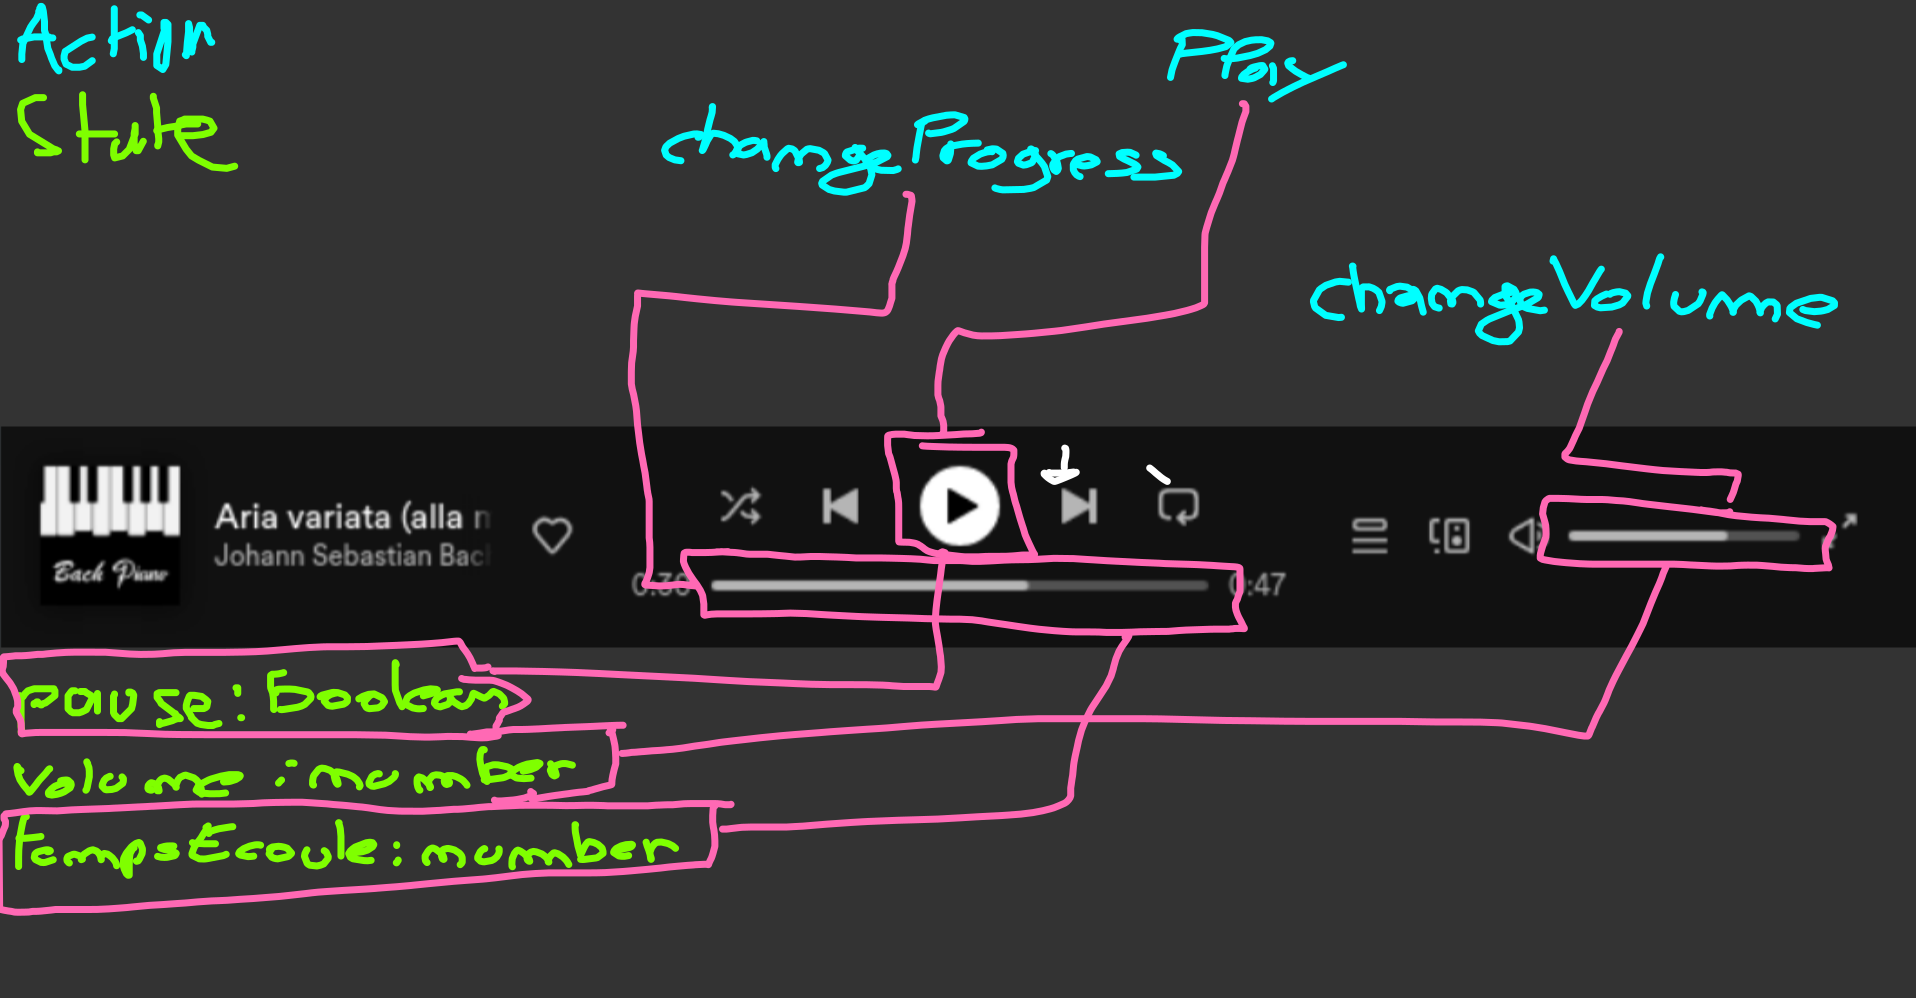 Action
State
Play
changeProgress
changeVolume
Aria variata (alla
Johann Sebastian Bac
Bach Piano
0:47
pause: boolean
volume: number
tempsEcoule: number